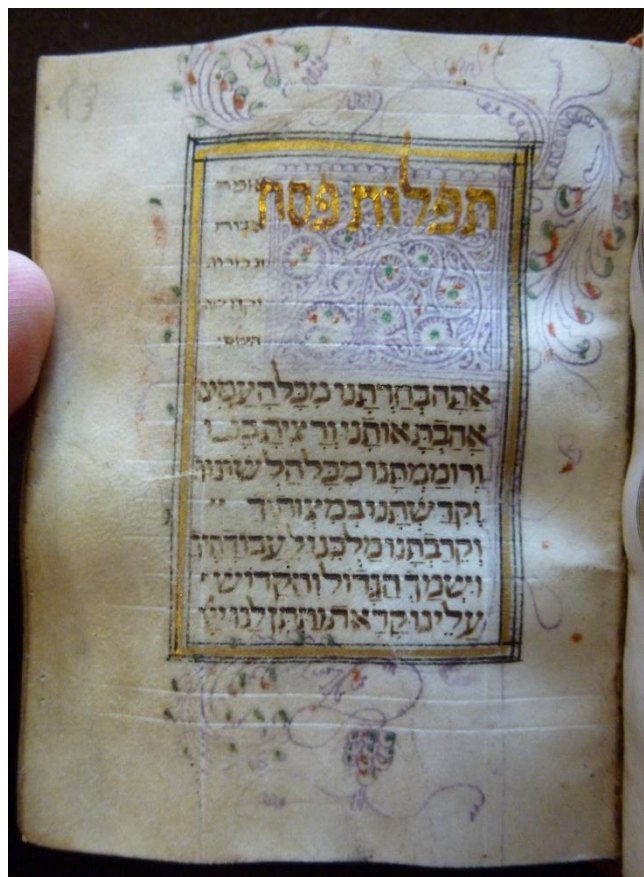 תפלות פסח
אומר
אבות
וגבורות
וקדושת
השם
אַתָּה בְחַרְתָּנוּ מִכָּל הָעַמִּים
אָהַבְתָּ אוֹתָנוּ וְרָצִיתָ בָּנוּ
וְרוֹמַמְתָּנוּ מִכָּל הַלְשׁוֹנוֹת
וְקִדַּשְׁתָּנוּ בְּמִצְוֹתֶיךָ
וְקֵרַבְתָּנוּ מַלְכֵּנוּ לַעֲבוֹדָתֶךָ
וְשִׁמְךָ הַגָּדוֹל וְהַקָּדוֹשׁ
עָלֵינוּ קָרָאתָ וַתִּתֶּן לָנוּ